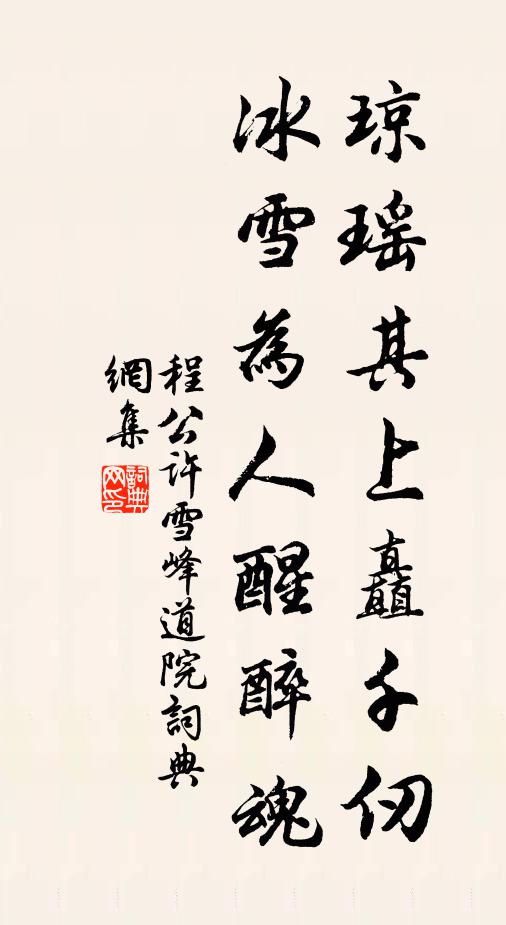 琼瑶其上矗千仞
冰雪為人醒醉魂
程公许雪峰道院詞典
網集
詞典網印